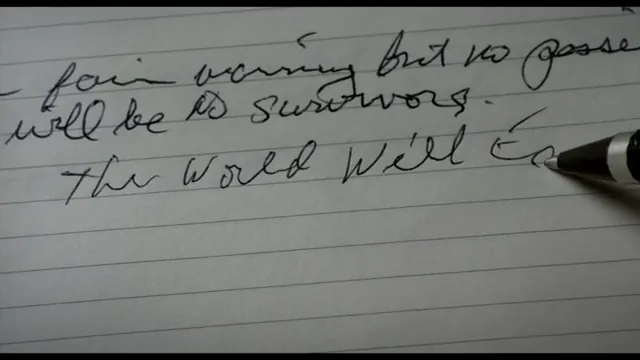 - fair warning but no possi
will be no survivors.
The World Will E